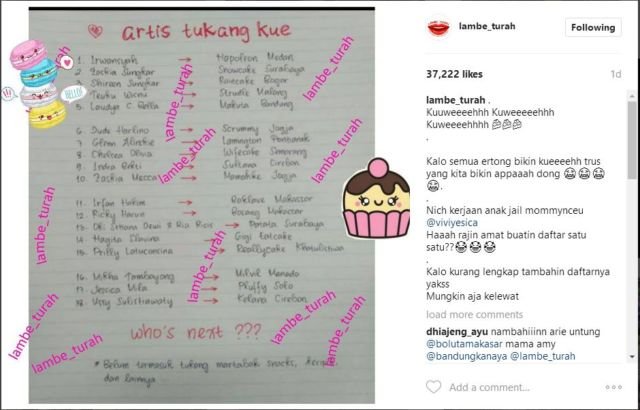 artis tukang kue
1. Irwansyah → Napoleon Medan
2. Zaskia Sungkar → Snowcake Surabaya
3. Shireen Sungkar → Raincake Bogor
4. Teuku Wisnu → Strudle Malang
5. Laudya C. Bella → Makuta Bandung
6. Dude Harlino → Scrummy Jogja
7. Glenn Alinskie → Lamington Pontianak
8. Chelsea Olivia → Wifecake Semarang
9. Indra Bekti → Sultana Cirebon
10. Zaskia Mecca → Mamahke Jogja
11. Irfan Hakim → Baklave Makassar
12. Ricky Harun → Bosang Makassar
13. Oki Setiana Dewi & Ria Ricis → Patata Surabaya
14. Nagita Slavina → Gigi Eatcake
15. Prilly Latuconsina → Reallycake Khatulistiwa
16. Mikha Tambayong → Milvil Menado
17. Jessica Mila → Pluffy Solo
18. Ussy Sulistiawaty → Kelana Cirebon
who's next ???
* Belum termasuk tukang martabak, snacks,
dan lainnya ...
HELLO!
lambe_turah
lambe_turah
lambe_turah
lambe_turah
lambe_turah
lambe_turah
lambe_turah
lambe_turah
lambe_turah
lambe_turah
lambe_turah
lambe_turah
lambe_turah
Following
37,222 likes
1d
lambe_turah .
Kuuweeeehhh Kuweeeeehhh
Kuweeeehhhh
.
Kalo semua ertong bikin kueeeehh trus
yang kita bikin appaaah dong
.
Nich kerjaan anak jail mommynceu
@viviyesica
Haaah rajin amat buatin daftar satu
satu??
.
Kalo kurang lengkap tambahin daftarnya
yakss
Mungkin aja kelewat
load more comments
dhiajeng_ayu nambahiiinn arie untung
@bolutamakasar mama amy
@bandungkanaya @lambe_turah
Add a comment...